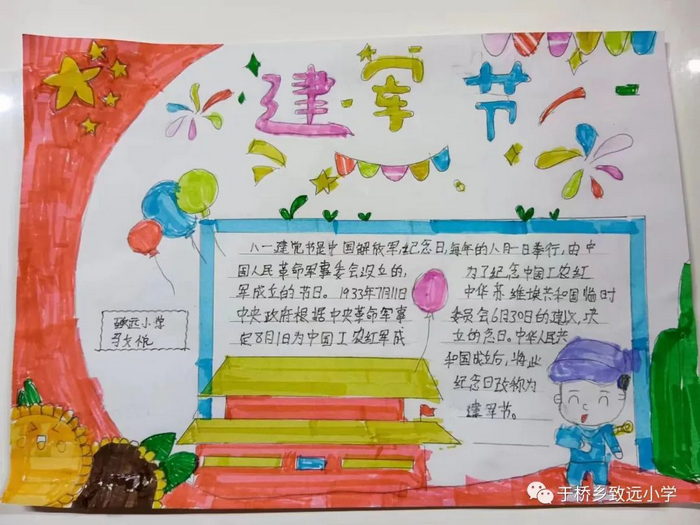 建军节
八一建军节是中国解放军纪念日,每年的八月一日奉行,由中
国人民革命军事委会设立的, 为了纪念中国工农红
军成立的节日。1933年7月11日 中华苏维埃共和国临时
中央政府根据中央革命军事 委员会6月30日的建议,决
定8月1日为中国工农红军成 立的念日。中华人民共
和国成立后,将此
纪念日改称为
建军节。
致远小学
于桥乡致远小学